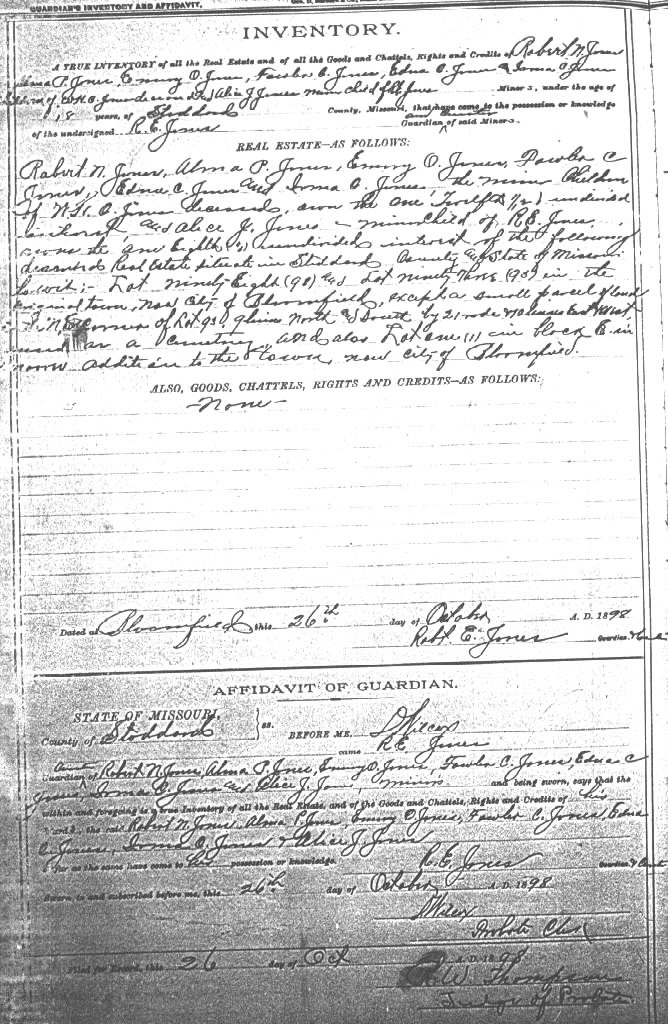 GUARDIAN'S INVENTORY AND AFFIDAVIT.
INVENTORY.
A TRUE INVENTORY of all the Real Estate and of all the Goods and Chattels, Rights and Credits of Robert N. Jones
Alma P. Jones, Emory O. Jones, Fowler C. Jones, Edna C. Jones & Irma O. Jones
Children of W. H. O. Jones deceased & Alice J Jones minor child of R. E. Jones Minors, under the age of
18 years, of Stoddard County, Missouri, that have come to the possession or knowledge
of the undersigned R. E. Jones Guardian and Curator of said Minors.
REAL ESTATE—AS FOLLOWS:
Robert N. Jones, Alma P. Jones, Emory O. Jones, Fowler C
Jones, Edna C. Jones and Irma O. Jones, the minor Children
of W. H. O. Jones deceased, own the one Twelfth (1/12) undivided
interest, and Alice J. Jones minor child of R. E. Jones,
owns the one Eighth (1/8) undivided interest of the following
described Real Estate situate in Stoddard County and State of Missouri
to wit:- Lot ninety-Eight (98) and Lot ninety Three (93) in the
original town, now City of Bloomfield, except a small parcel of land
N.E. corner of Lot 93, North & South by 21 rods East & West
used as a Cemetery, and also Lot one (1) in block E. in
addition to the town, now city of Bloomfield.
ALSO, GOODS, CHATTELS, RIGHTS AND CREDITS—AS FOLLOWS:
—None—
Dated at Bloomfield this 26th day of October A. D. 1898
Robt. E. Jones Guardian &
AFFIDAVIT OF GUARDIAN.
STATE OF MISSOURI,
County of Stoddard } ss. BEFORE ME, D Wilcox
came R. E. Jones
Guardian of Robert N Jones, Alma P. Jones, Emory O Jones, Fowler C. Jones, Edna C
Jones, Irma O. Jones and Alice J. Jones, minors and being sworn, says that the
within and foregoing is a true Inventory of all the Real Estate, and of the Goods and Chattels, Rights and Credits of his
Ward s, the said Robert N. Jones, Alma P. Jones, Emory O Jones, Fowler C. Jones, Edna
C. Jones, Irma O. Jones & Alice J. Jones
so far as the same have come to his possession or knowledge.
R. E. Jones Guardian &
Sworn to and subscribed before me, this 26th day of October A. D. 1898
D Wilcox
Probate Clerk
Filed for Record, this 26 day of Oct A. D. 1898
W Thompson
Judge of Probate